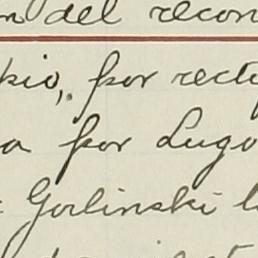 n del recon
kio, por recti
a por Lugo
Gorlinski l